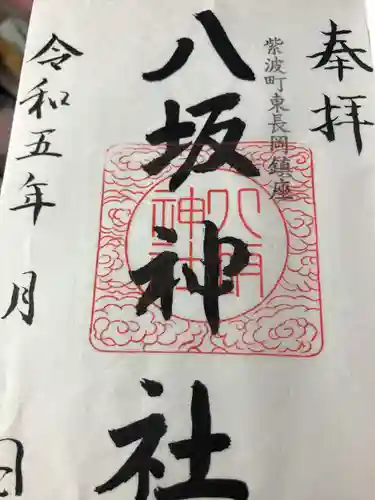 奉拝
紫波町東長岡鎮座
八坂神社
八坂神社
令和五年 月 日